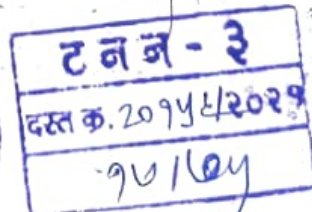 ट न न - ३
दस्त क. २०१५६/२०२१
१७/७५